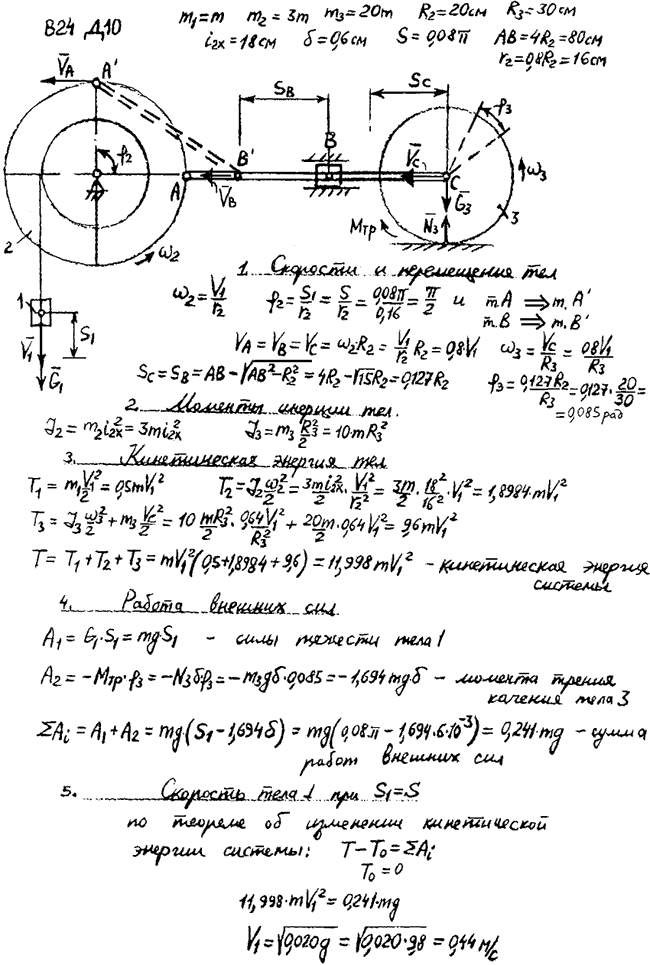 В24 Д10
m₁=m m₂=3m m₃=20m R₂=20см R₃=30см
i₂ₓ=18см δ=0,6см S=0,08π AB=4R₂=80см
r₂=0,8R₂=16см
V̄A A'
S_B S_C
φ₂ B' B φ₃
A V̄B V̄C C ω₃
Ḡ₃
2 ω₂ Mтр N̄₃ 3
1 S₁
V̄₁
Ḡ₁
1. Скорости и перемещения тел
ω₂=V₁/r₂ φ₂=S₁/r₂=S/r₂=0,08π/0,16=π/2 и т.A ⇒ т.A'
т.B ⇒ т.B'
VA=VB=VC=ω₂R₂=V₁/r₂ R₂=0,8V₁ ω₃=VC/R₃=0,8V₁/R₃
SC=SB=AB-√(AB²-R₂²)=4R₂-√15R₂=0,127R₂ φ₃=0,127R₂/R₃=0,127·20/30=
=0,085 рад
2. Моменты инерции тел.
J₂=m₂i₂ₓ²=3mi₂ₓ² J₃=m₃R₃²/2=10·mR₃²
3. Кинетическая энергия тел
T₁=m₁V₁²/2=0,5mV₁² T₂=J₂ω₂²/2=3mi₂ₓ²/2·V₁²/r₂²=3m/2·18²/16²·V₁²=1,8984·mV₁²
T₃=J₃ω₃²/2+m₃VC²/2=10mR₃²/2·0,64V₁²/R₃²+20m/2·0,64V₁²=9,6mV₁²
T=T₁+T₂+T₃=mV₁²(0,5+1,8984+9,6)=11,998mV₁² - кинетическая энергия
системы
4. Работа внешних сил
A₁=G₁·S₁=mgS₁ - силы тяжести тела 1
A₂=-Mтр·φ₃=-N₃δφ₃=-m₃gδ·0,085=-1,694mgδ - момента трения
качения тела 3
ΣAᵢ=A₁+A₂=mg(S₁-1,694δ)=mg(0,08·π-1,694·6·10⁻³)=0,241·mg - сумма
работ внешних сил
5. Скорость тела 1 при S₁=S
по теореме об изменении кинетической
энергии системы: T-T₀=ΣAᵢ
T₀=0
11,998·mV₁²=0,241·mg
V₁=√0,020g=√0,020·9,8=0,44 м/с